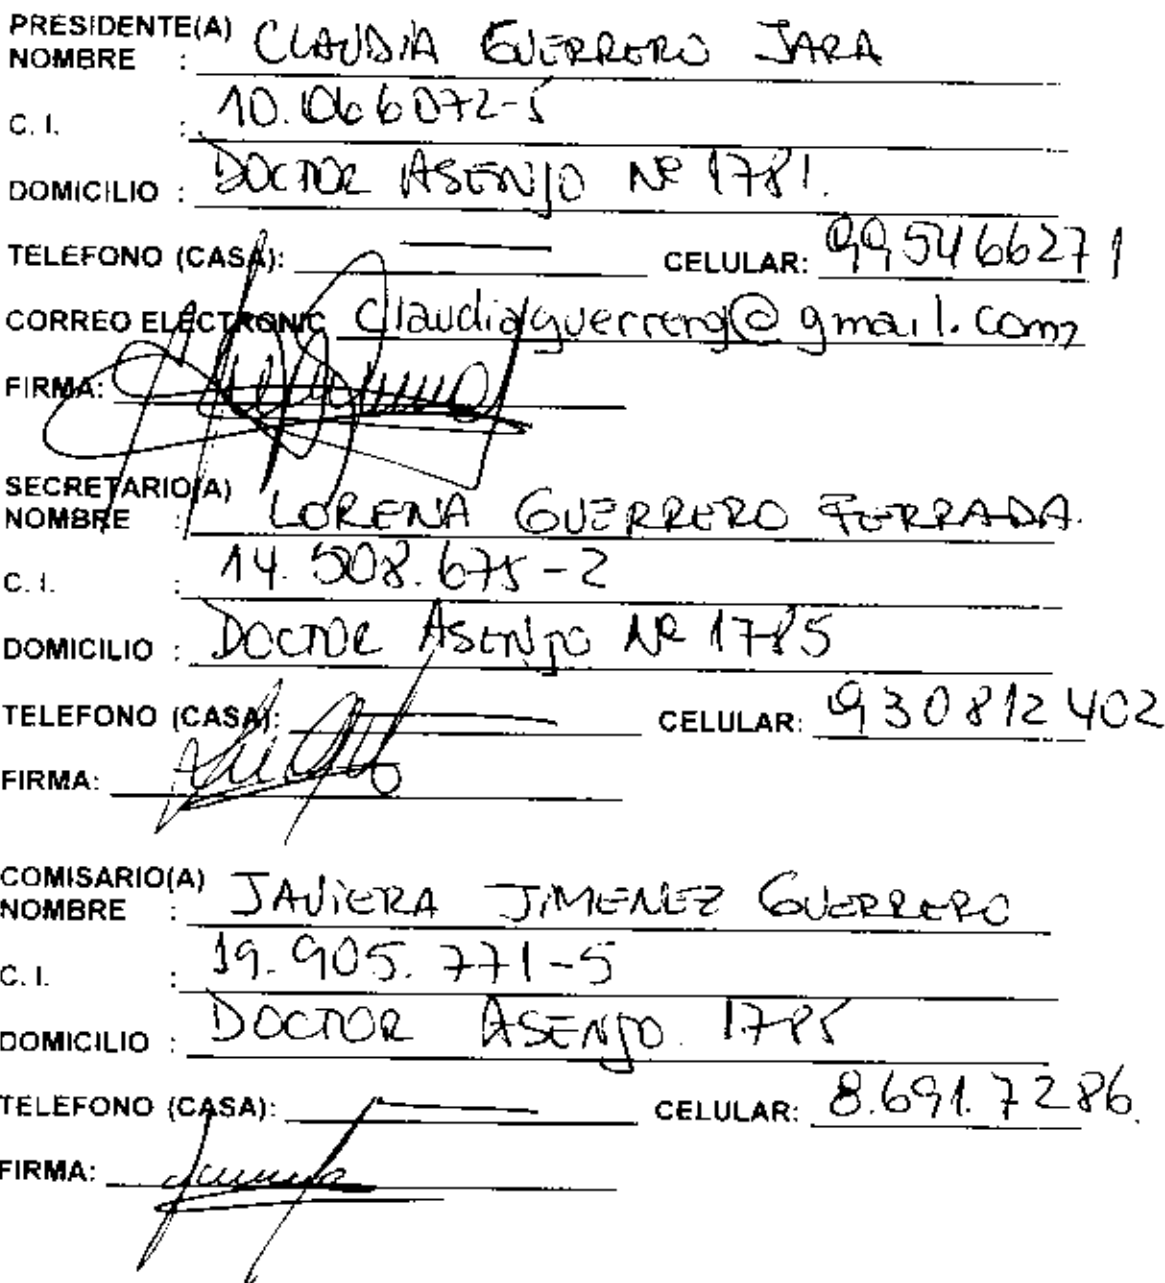 PRESIDENTE(A)
NOMBRE : CLAUDIA GUERRERO JARA
C. I. : 10.066072-5
DOMICILIO : DOCTOR ASENJO Nº 1781.
TELEFONO (CASA): — CELULAR: 995466271
CORREO ELECTRONIC claudiaguerrerog@gmail.com
FIRMA:
SECRETARIO(A)
NOMBRE : LORENA GUERRERO FERRADA.
C. I. : 14.508.675-2
DOMICILIO : DOCTOR ASENJO Nº 1785
TELEFONO (CASA): — CELULAR: 930812402
FIRMA:
COMISARIO(A)
NOMBRE : JAVIERA JIMENEZ GUERRERO
C. I. : 19.905.771-5
DOMICILIO : DOCTOR ASENJO. 1785
TELEFONO (CASA): — CELULAR: 8.691.7286.
FIRMA: